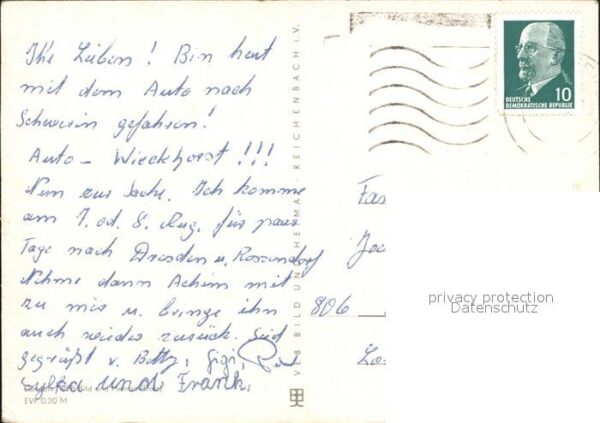 Ihr Lieben! Bin heut
mit dem Auto nach
Schwerin gefahren!
Auto – Wieckhorst!!!
Nun zur Sache. Ich komme
am 7. od. 8. Aug. für paar
Tage nach Dresden u. Rossendorf
Nehme dann Achim mit
zu mir u. bringe ihn
auch wieder zurück. Seid
gegrüßt v. Betty, Gigi,
Sylka und Frank.
EVP 0,20 M
VEB BILD UND HEIMAT REICHENBACH i.V.
10
DEUTSCHE
DEMOKRATISCHE REPUBLIK
Fa
806
privacy protection
Datenschutz